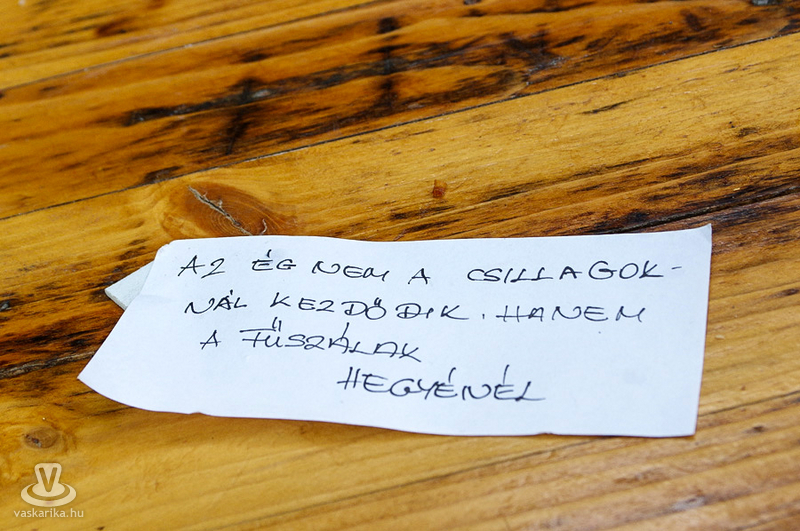 AZ ÉG NEM A CSILLAGOK-
NÁL KEZDŐDIK. HANEM
A FŰSZÁLAK
HEGYÉNÉL
vaskarika.hu